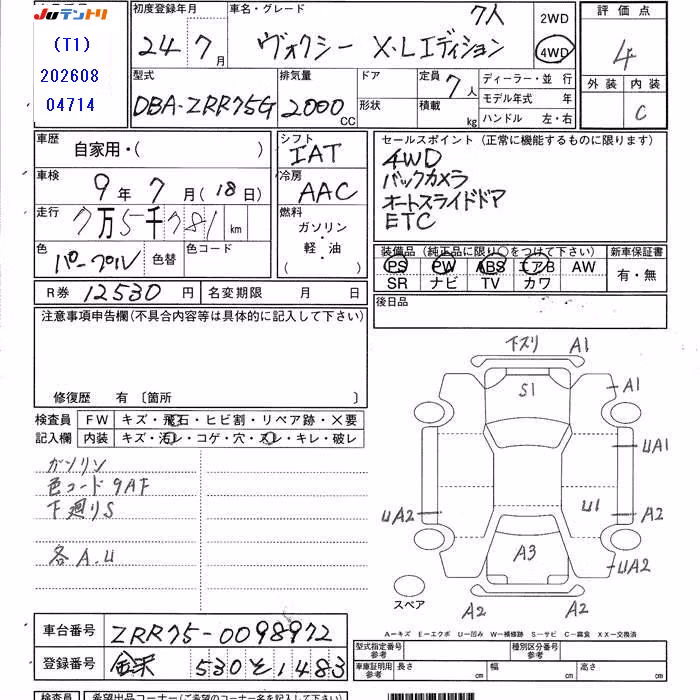 JUテントリ
(T1)
202608
04714
初度登録年月
24年7月
車名・グレード
ヴォクシー X・Lエディション
7人
2WD
4WD
評価点
4
外装 内装
C
型式
DBA-ZRR75G
排気量
2000 CC
ドア
形状
定員 7人
積載 kg
ディーラー・並行
モデル年式 年
ハンドル 左・右
車歴
自家用・( )
車検
9年7月(18日)
走行
7万5千781 km
色
パープル
色替
色コード
シフト
IAT
冷房
AAC
燃料
ガソリン
・軽・油
( )
セールスポイント (正常に機能するものに限ります)
4WD
バックカメラ
オートスライドドア
ETC
装備品 (純正品に限り○をつけて下さい)
PS PW ABS エアB AW
SR ナビ TV カワ
新車保証書
有・無
後日品
R券 12530 円
名変期限 月 日
注意事項申告欄(不具合内容等は具体的に記入して下さい)
修復歴 有 〔箇所 〕
検査員
記入欄
FW キズ・飛石・ヒビ割・リペア跡・×要
内装 キズ・汚レ・コゲ・穴・スレ・キレ・破レ
ガソリン
色コード 9AF
下廻りS
各A.U
下スリ A1
S1
A1
UA1
U1
A2
UA2
UA2
A3
A2
A2
スペア
A―キズ E―エクボ U―凹み W―補修跡 S―サビ C―腐食 XX―交換済
車台番号 ZRR75-0098972
登録番号 530 そ 1483
型式指定番号
参考
種別区分番号
参考
車庫証明用
参考
長さ cm
幅 cm
高さ cm
検査員
希望出品コーナー(ご希望のコーナー名を記入して下さい)